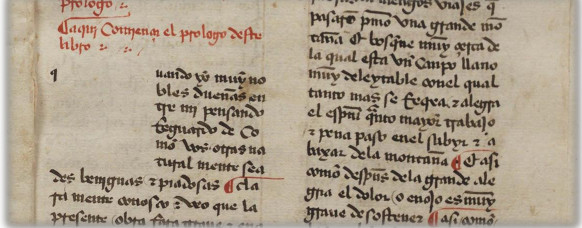 prologo
¶ aqui Comiença el prologo deste
libro
uando yo muy no
bles dueñas en
tre mi pensando
Reguardo de Co
mo vos otras na
tural mente sea
des benignas & piadosas ¶ cla
ra mente conosco & veo que la
presente obra
viajes q
pasar primo vna grande mō
taña & bosque muy çerca de
la qual esta vn Canpo llano
muy deleytable conel qual
tanto mas se & alegra
el espiritu quanto mayor trabajo
& pena paso enel subyr & a
baxar dela montaña ¶ & asi
como despues dela grande ale
gra el dolor & enojo es muy
graue de sostener ¶ asi como